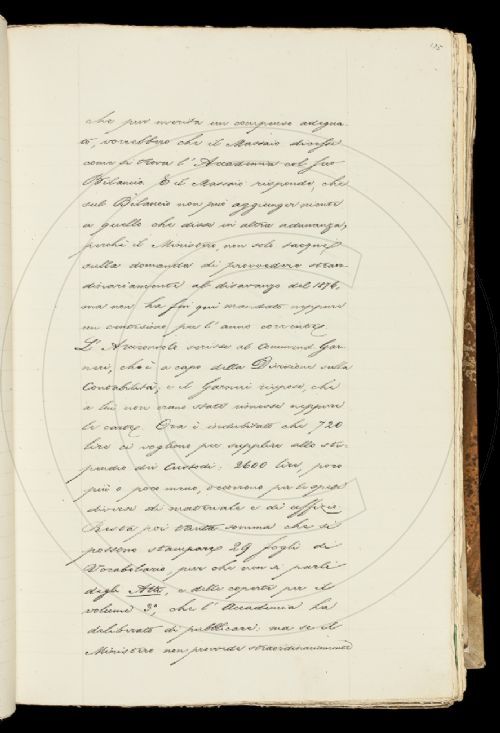 125
che pur merita un compenso adegua-
to, vorrebbero che il Massaio dicesse
come si trova l'Accademia col suo
Bilancio. E il Massaio risponde, che
sul Bilancio non può aggiunger niente
a quello che disse in altra adunanza;
perchè il Ministero, non solo tacque
sulla domanda di provvedere straor-
dinariamente al disavanzo del 1876,
ma non ha fin qui mandato neppure
un centesimo per l'anno corrente.
L'Arciconsolo scrisse al Commend. Gar-
neri, che è a capo della Direzione sulla
Contabilità; e il Garneri rispose, che
a lui non erano state rimesse neppure
le carte. Ora è indubitato che 720
lire ci vogliono per supplire allo sti-
pendio dei Custodi: 2600 lire, poco
più o poco meno, occorrono per le spese
diverse di materiale e di uffizio.
Resta poi tanta somma che si
possono stampare 29 fogli di
Vocabolario, pur che non si parli
degli Atti, e delle coperte per il
volume 3º, che l'Accademia ha
deliberato di pubblicare: ma se il
Ministero non provvede straordinariamente